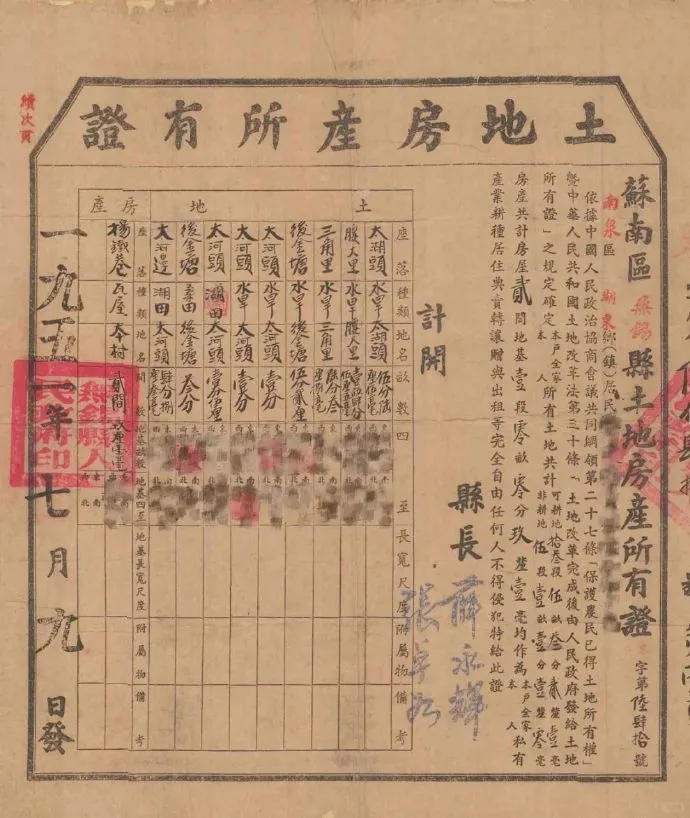 土地房產所有證
續次頁
蘇南區無錫縣土地房產所有證 字第陸肆拾號
南泉區湖東鄉(鎮)居民
依據中國人民政治協商會議共同綱領第二十七條「保護農民已得土地所有權」
暨中華人民共和國土地改革法第三十條「土地改革完成後由人民政府發給土地
所有證」之規定確定本戶全家本人所有土地共計可耕地拾叁段伍畝叁分貳釐壹毫非耕地伍段壹畝壹分壹釐零毫
房產共計房屋貳間地基壹段零畝零分玖釐壹毫均作為本戶全家本人私有
產業耕種居住典賣轉讓贈與出租等完全自由任何人不得侵犯特給此證
計開
縣長
土地
座落 種類 地名 畝數 四至 長寬尺度 附屬物 備考
太湖頭 水旱 太湖頭
腰大里 水旱 腰大里
三角里 水旱 三角里
後金塘 水旱 後金塘 伍分貳釐
大河頭 水旱 大河頭 壹分
大河頭 水旱 大河頭 壹分
大河頭 湖田 大河頭
後金塘 後金塘 叁分
大河邊 湖田 大河邊
房產
座落 種類 地名 間數 地基畝數 地基四至 地基長寬尺度 附屬物 備考
楊巷 瓦屋 本村 貳間 玖釐壹毫
一九五一年七月九日發
無錫縣人民政府印